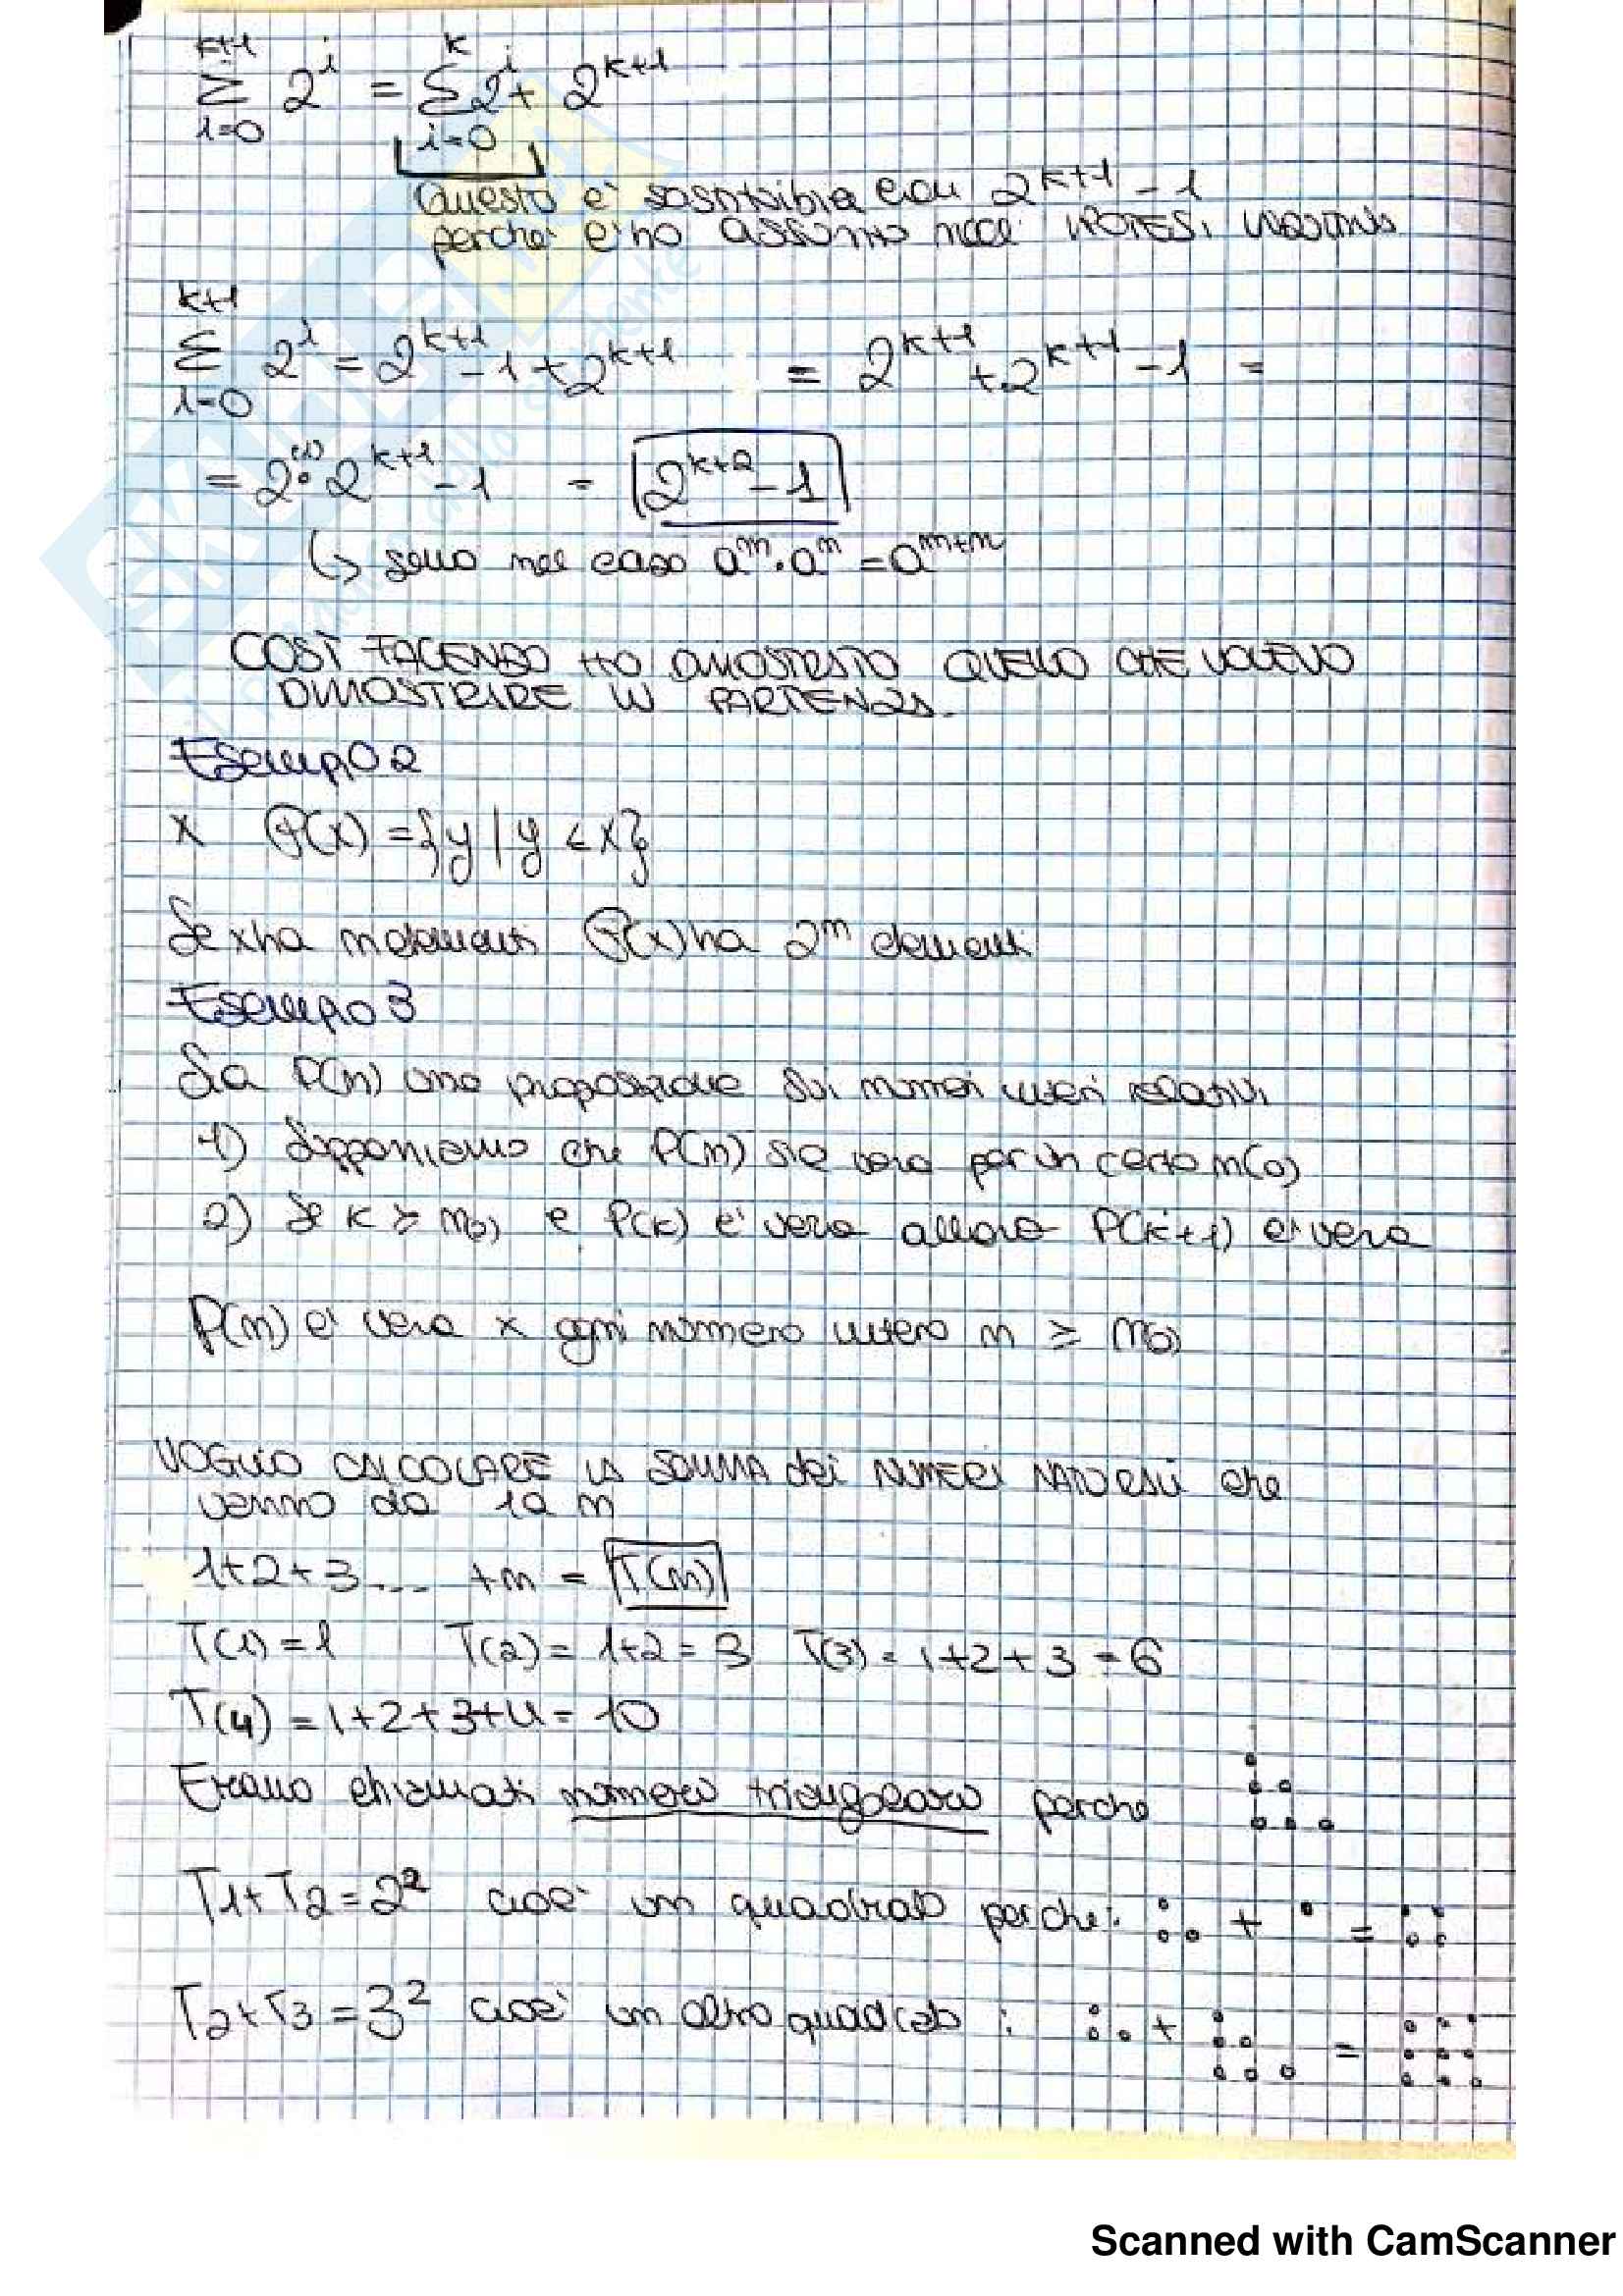 k+1
Σ 2^i = Σ 2^i + 2^{k+1}
i=0
Questo è sostituibile con 2^{k+1} - 1
perché è ho assunto nell' IPOTESI INDUTTIVA
k+1
Σ 2^i = 2^{k+1} - 1 + 2^{k+1} = 2^{k+1} + 2^{k+1} - 1 =
i=0
= 2^{(1)} · 2^{k+1} - 1 = 2^{k+2} - 1
↳ sono nel caso a^m · a^n = a^{m+n}
COSÌ FACENDO HO DIMOSTRATO QUELLO CHE VOLEVO
DIMOSTRARE IN PARTENZA.
Esempio 2
X P(X) = {y | y ⊂ X}
Se X ha n elementi P(X) ha 2^n elementi
Esempio 3
Sia P(n) una proposizione sui numeri interi relativi
1) Supponiamo che P(n) sia vera per un certo n(0)
2) Se k ≥ n(0) e P(k) è vera allora P(k+1) è vera
P(n) è vera x ogni numero intero n ≥ n(0)
VOGLIO CALCOLARE LA SOMMA dei NUMERI NATURALI che
vanno da 1 a n
1+2+3... +n = T(n)
T(1) = 1 T(2) = 1+2 = 3 T(3) = 1+2+3 = 6
T(4) = 1+2+3+4 = 10
Erano chiamati numero triangolare perche
T1+T2 = 2² cioè un quadrato perche: + =
T2+T3 = 3² cioè un altro quadrato : + =
Scanned with CamScanner